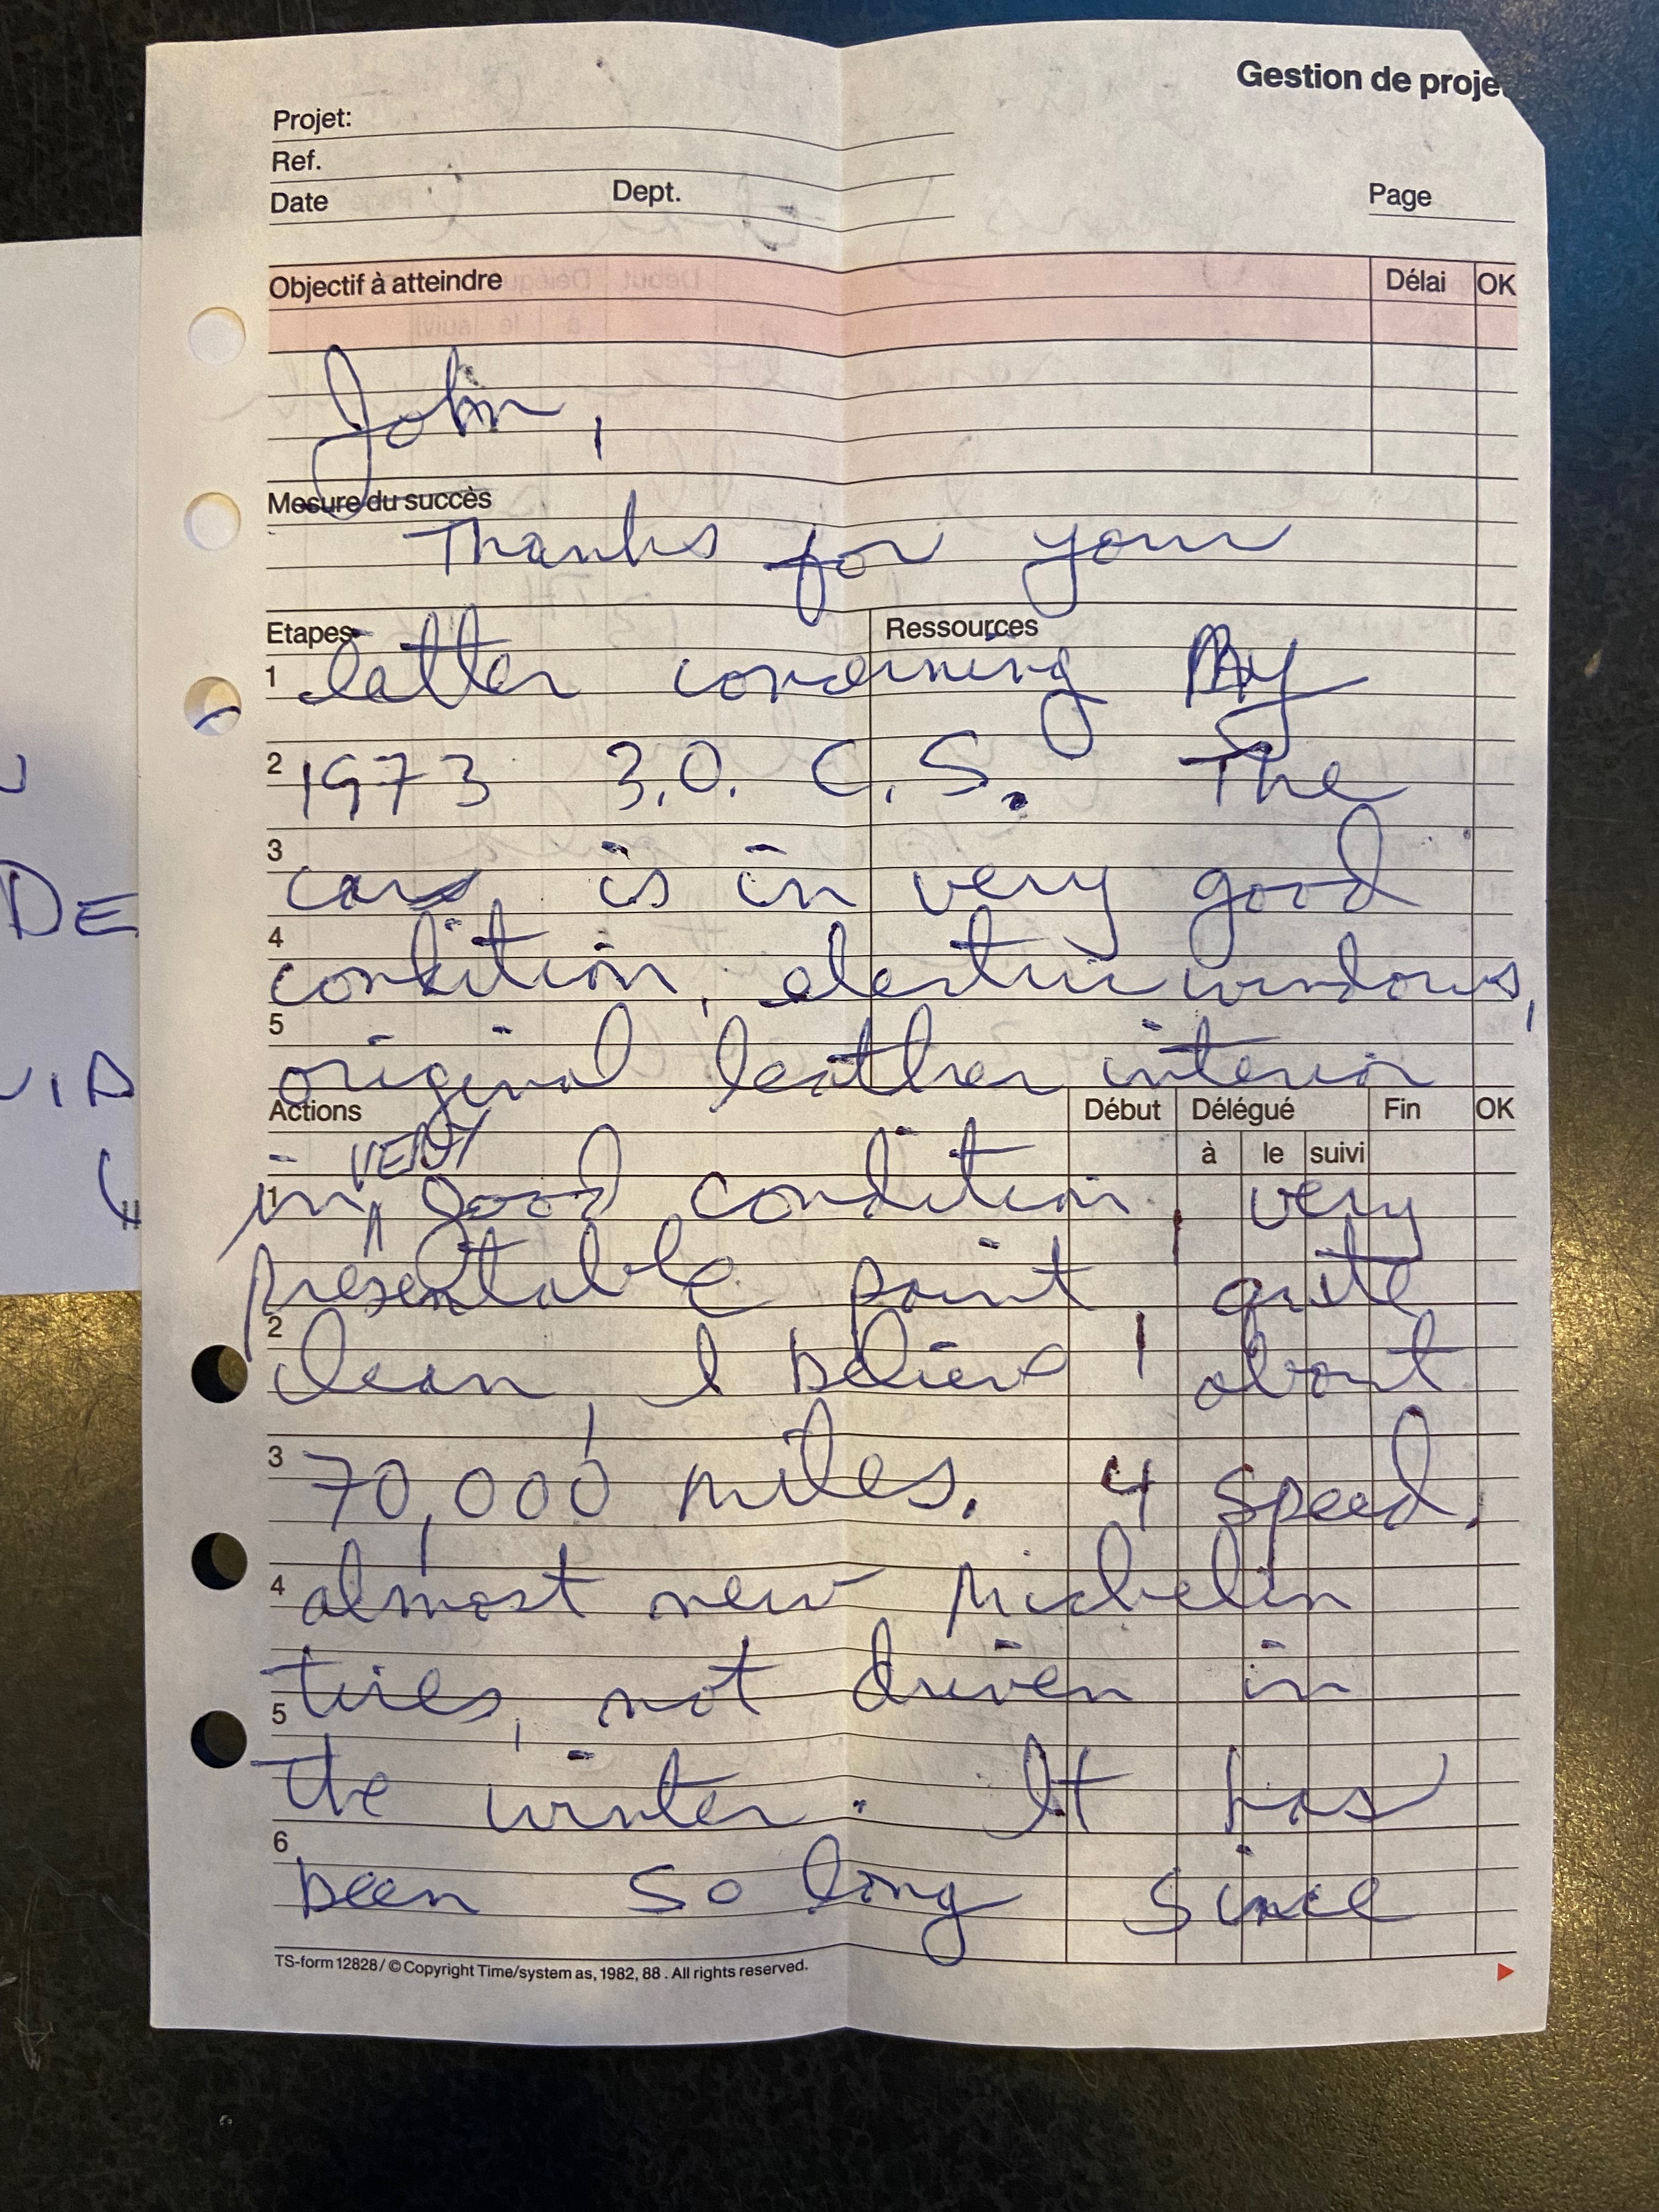 Gestion de proje
Projet:
Ref.
Date Dept. Page
Objectif à atteindre Délai OK
John,
Mesure du succès
Thanks for your
Etapes Ressources
1 letter concerning My
2 1973 3.0. C.S. The
3 car is in very good
4 condition, electric windows,
5 original leather interior
Actions Début Délégué Fin OK
à le suivi
VERY
1 in good condition, very
presentable paint, quite
2 clean, I believe about
3 70,000 miles. 4 speed,
4 almost new Michelin
5 tires, not driven in
the winter. It has
6 been so long since
TS-form 12828/ © Copyright Time/system as, 1982, 88. All rights reserved.
DE
VIA